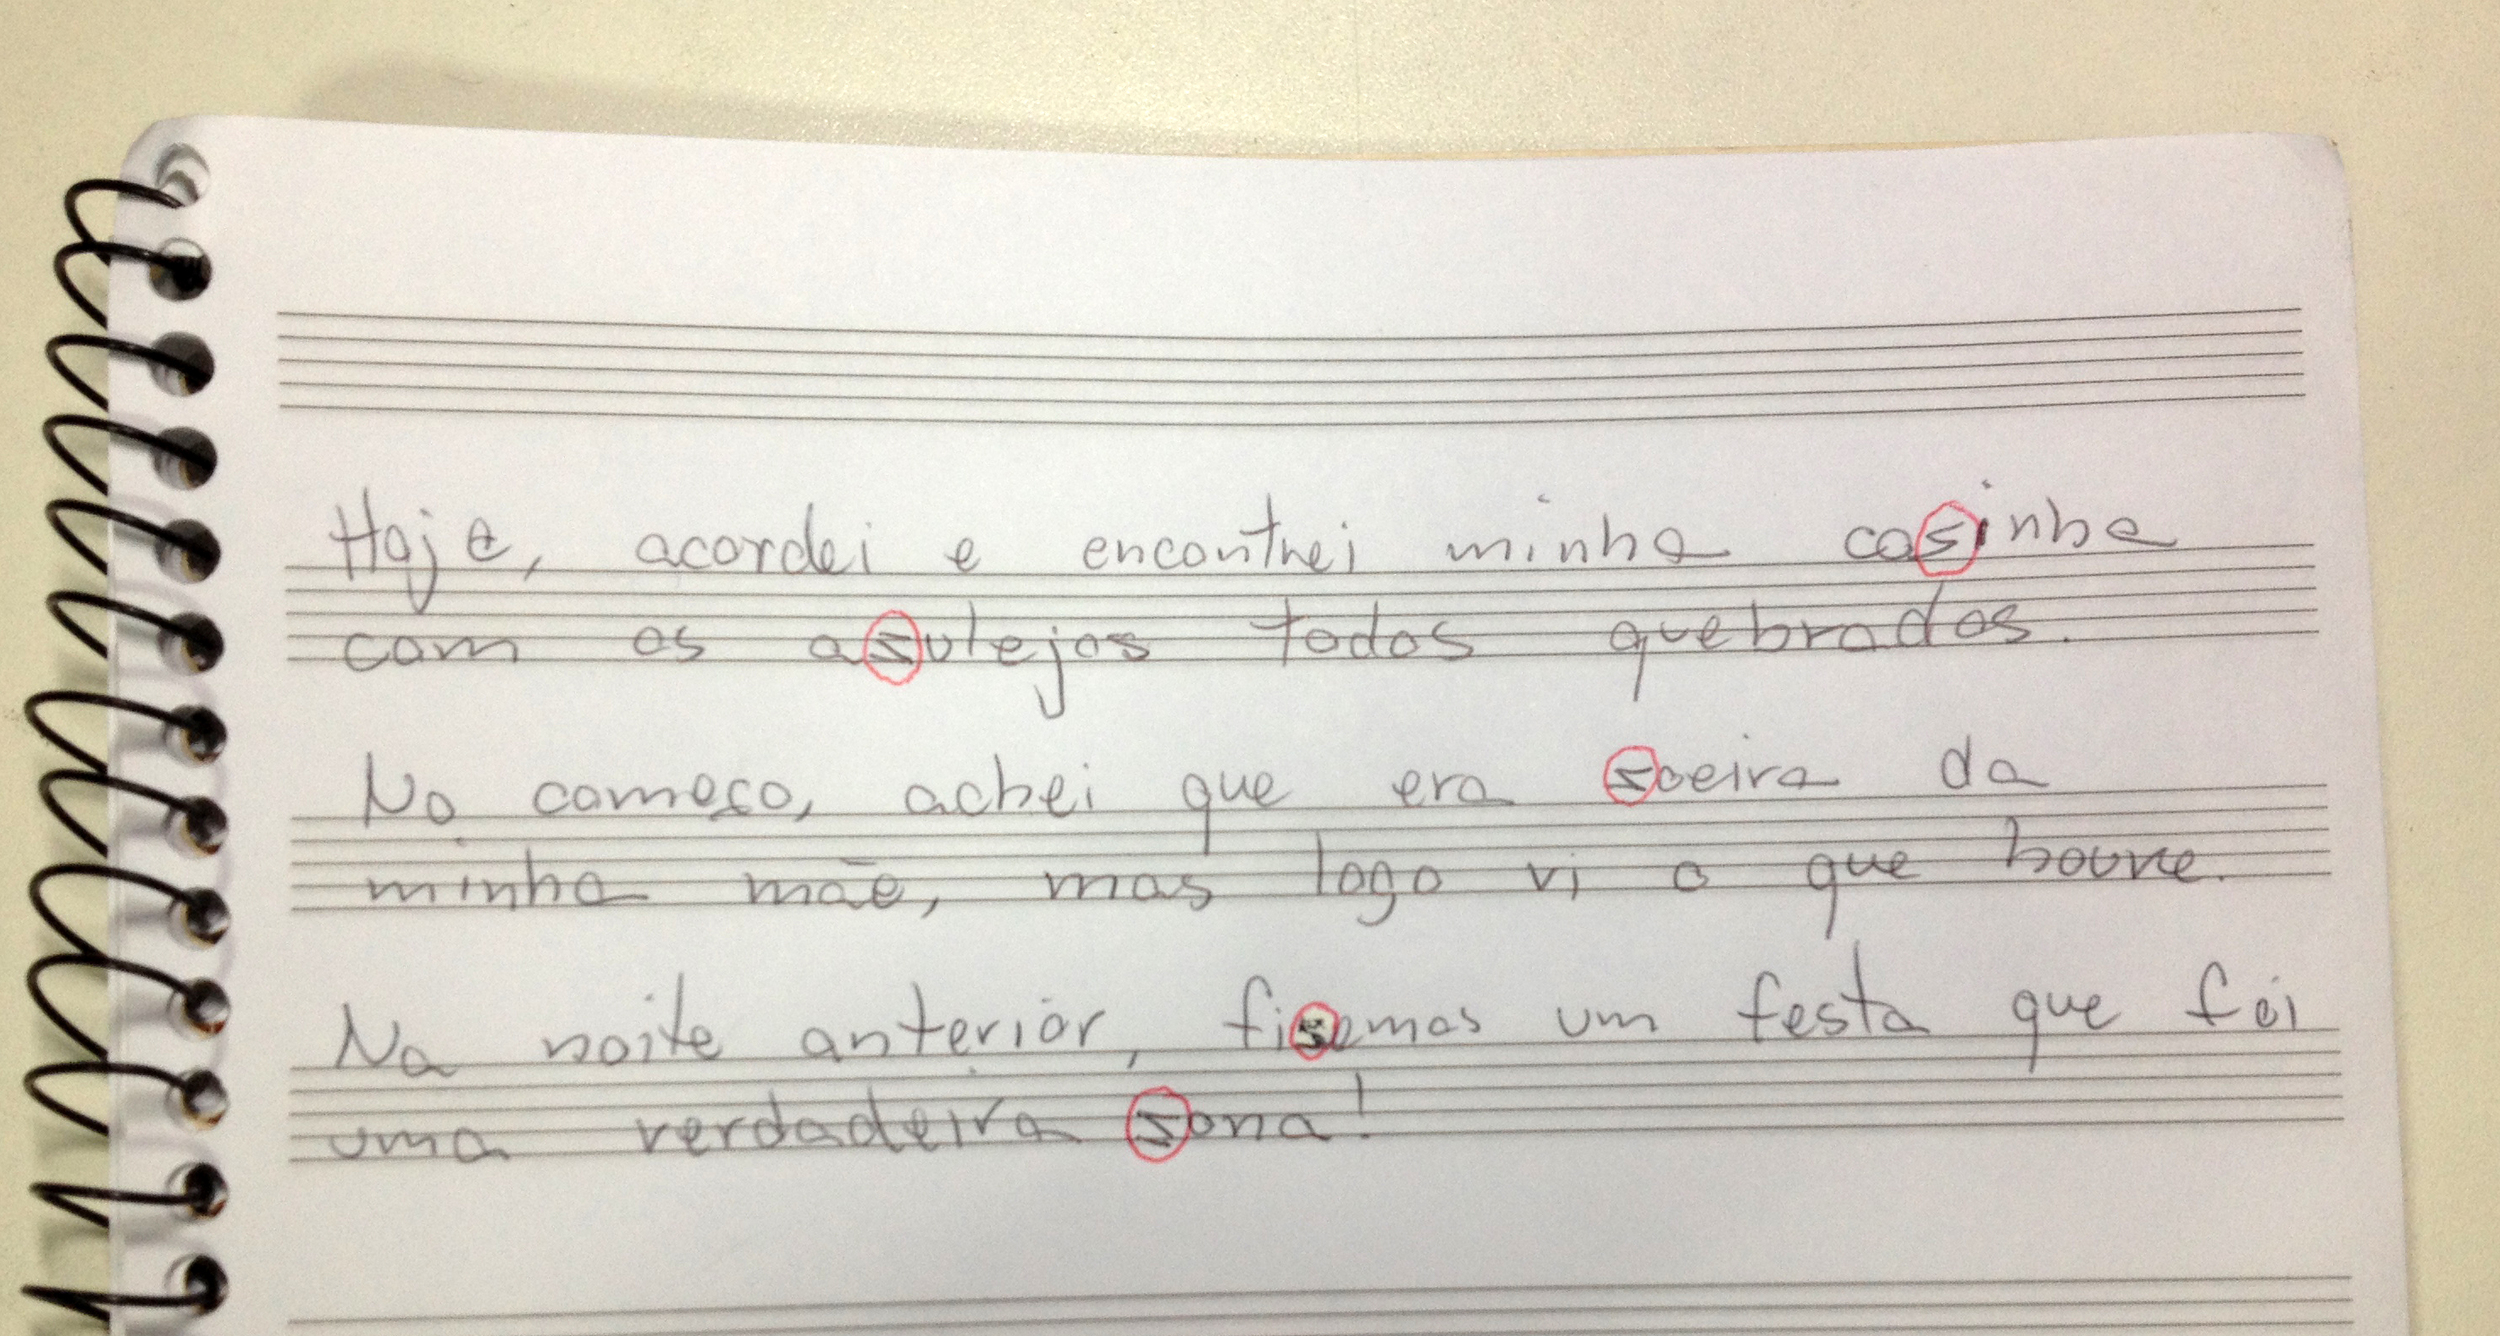 Hoje, acordei e encontrei minha cosinha
com os asulejos todos quebrados.
No começo, achei que era soeira da
minha mãe, mas logo vi o que houve.
Na noite anterior, fisemos um festa que foi
uma verdadeira sona!